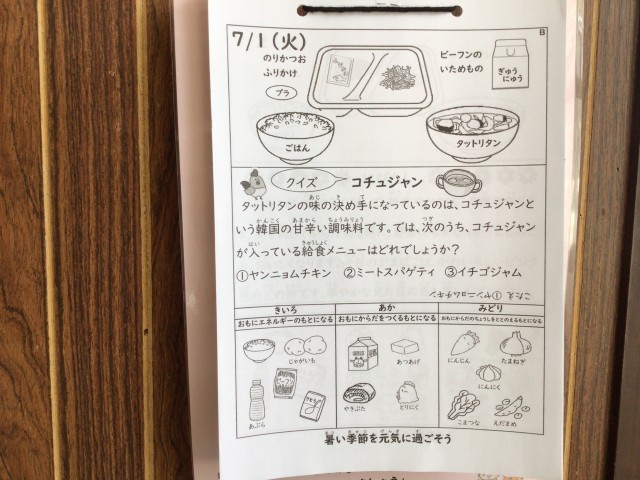 B
7/1(火)
のりかつお
ふりかけ
プラ
ビーフンの
いためもの
ぎゅう
にゅう
ごはん
タットリタン
クイズ
コチュジャン
タットリタンの味の決め手になっているのは、コチュジャンと
いう韓国の甘辛い調味料です。では、次のうち、コチュジャン
が入っている給食メニューはどれでしょうか?
①ヤンニョムチキン ②ミートスパゲティ ③イチゴジャム
こたえ ①ヤンニョムチキン
きいろ
おもにエネルギーのもとになる
じゃがいも
ビーフン
あぶら
あか
おもにからだをつくるもとになる
あつあげ
やきぶた
とりにく
みどり
おもにからだのちょうしをととのえるもとになる
にんじん
たまねぎ
にんにく
こまつな
えだまめ
暑い季節を元気に過ごそう